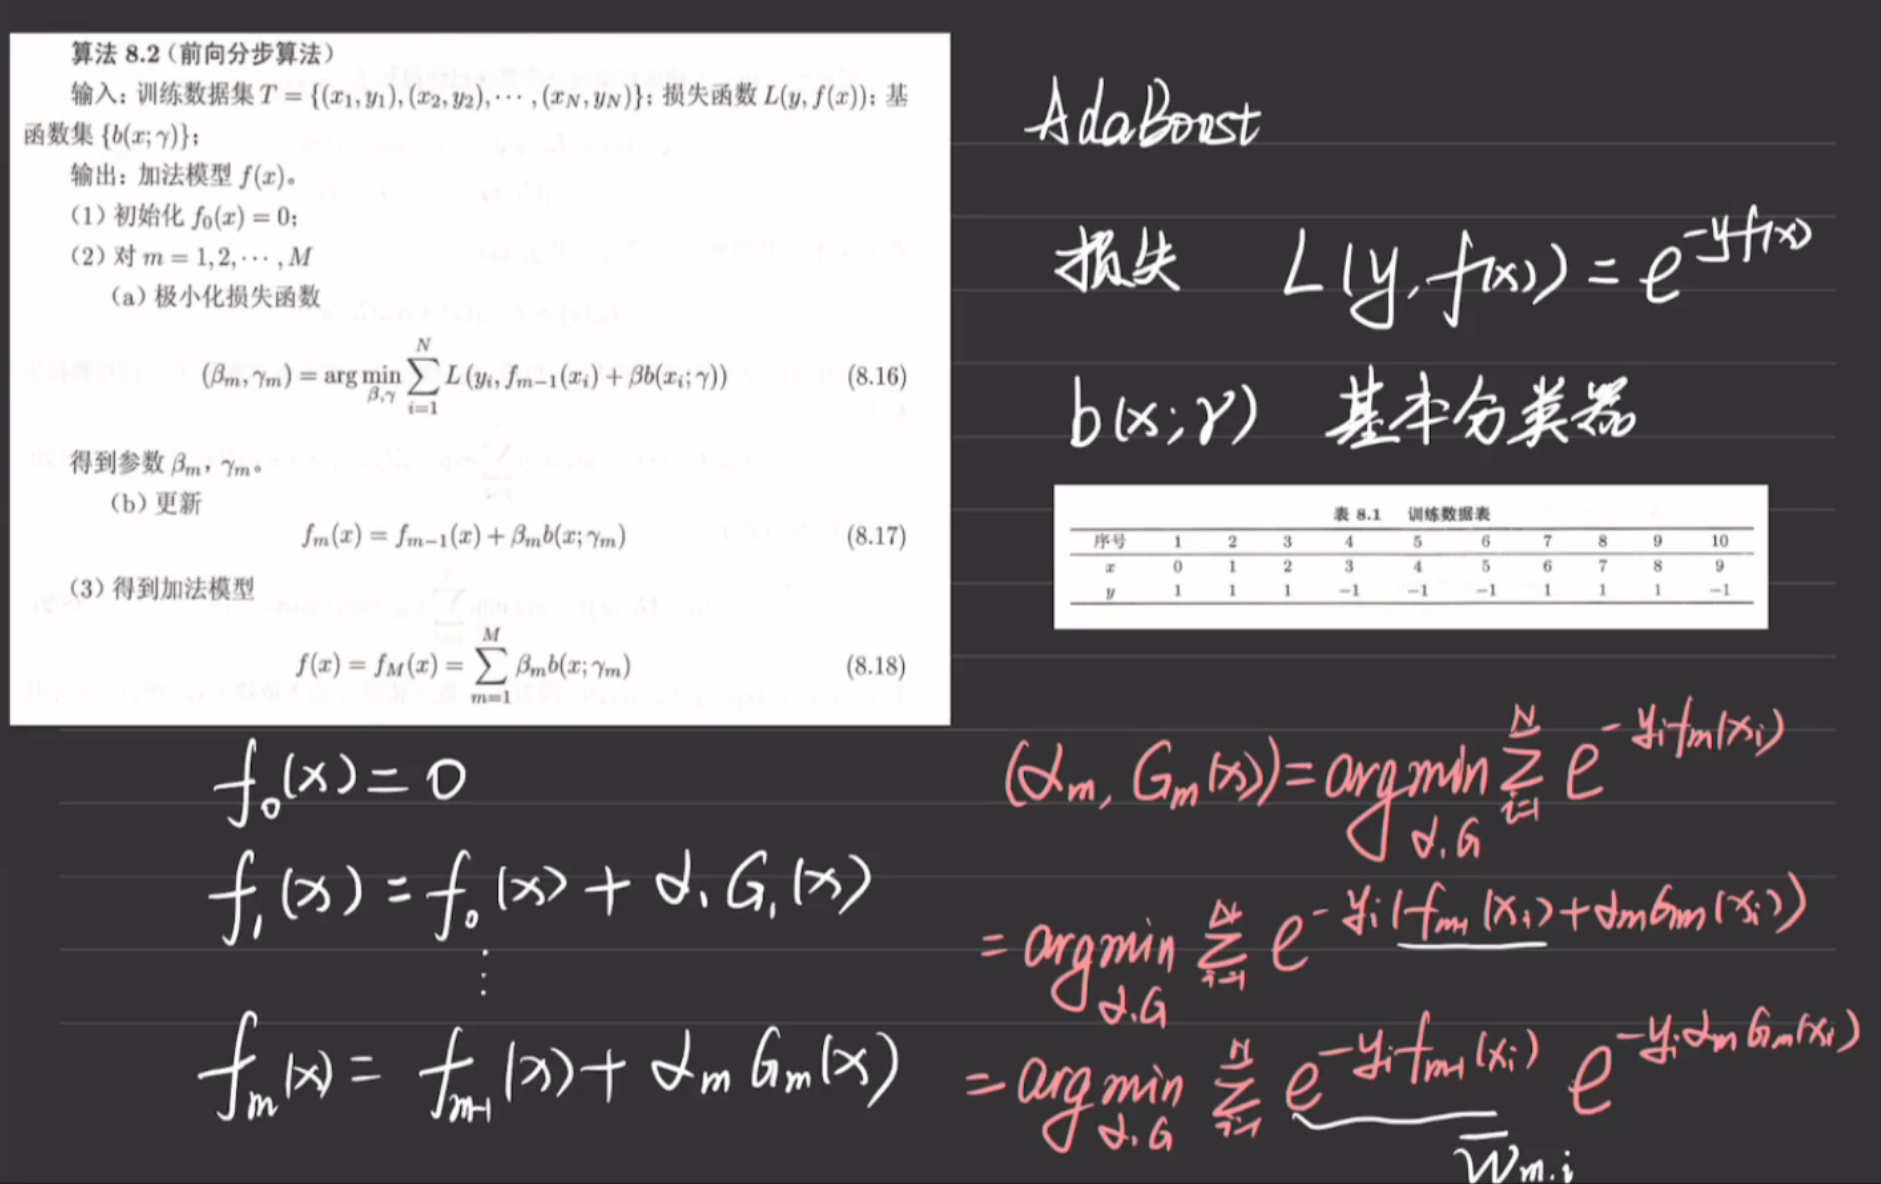 算法 8.2（前向分步算法）
输入：训练数据集 T = {(x₁, y₁), (x₂, y₂), ⋯ , (x_N, y_N)}；损失函数 L(y, f(x))；基
函数集 {b(x; γ)}；
输出：加法模型 f(x)。
（1）初始化 f₀(x) = 0；
（2）对 m = 1, 2, ⋯ , M
（a）极小化损失函数
(β_m, γ_m) = arg min_{β,γ} ∑_{i=1}^{N} L (y_i, f_{m−1}(x_i) + βb(x_i; γ)) (8.16)
得到参数 β_m，γ_m。
（b）更新
f_m(x) = f_{m−1}(x) + β_m b(x; γ_m) (8.17)
（3）得到加法模型
f(x) = f_M(x) = ∑_{m=1}^{M} β_m b(x; γ_m) (8.18)
AdaBoost
损失 L(y, f(x)) = e^{-yf(x)}
b(x; γ) 基本分类器
表 8.1 训练数据表
序号 1 2 3 4 5 6 7 8 9 10
x 0 1 2 3 4 5 6 7 8 9
y 1 1 1 −1 −1 −1 1 1 1 −1
f₀(x) = 0
f₁(x) = f₀(x) + α₁G₁(x)
⋮
f_m(x) = f_{m-1}(x) + α_m G_m(x)
(α_m, G_m(x)) = arg min_{α.G} ∑_{i=1}^{N} e^{-y_i f_m(x_i)}
= arg min_{α.G} ∑_{i=1}^{N} e^{-y_i(f_{m-1}(x_i) + α_m G_m(x_i))}
= arg min_{α.G} ∑_{i=1}^{N} e^{-y_i f_{m-1}(x_i)} e^{-y_i α_m G_m(x_i)}
w̅_{m.i}